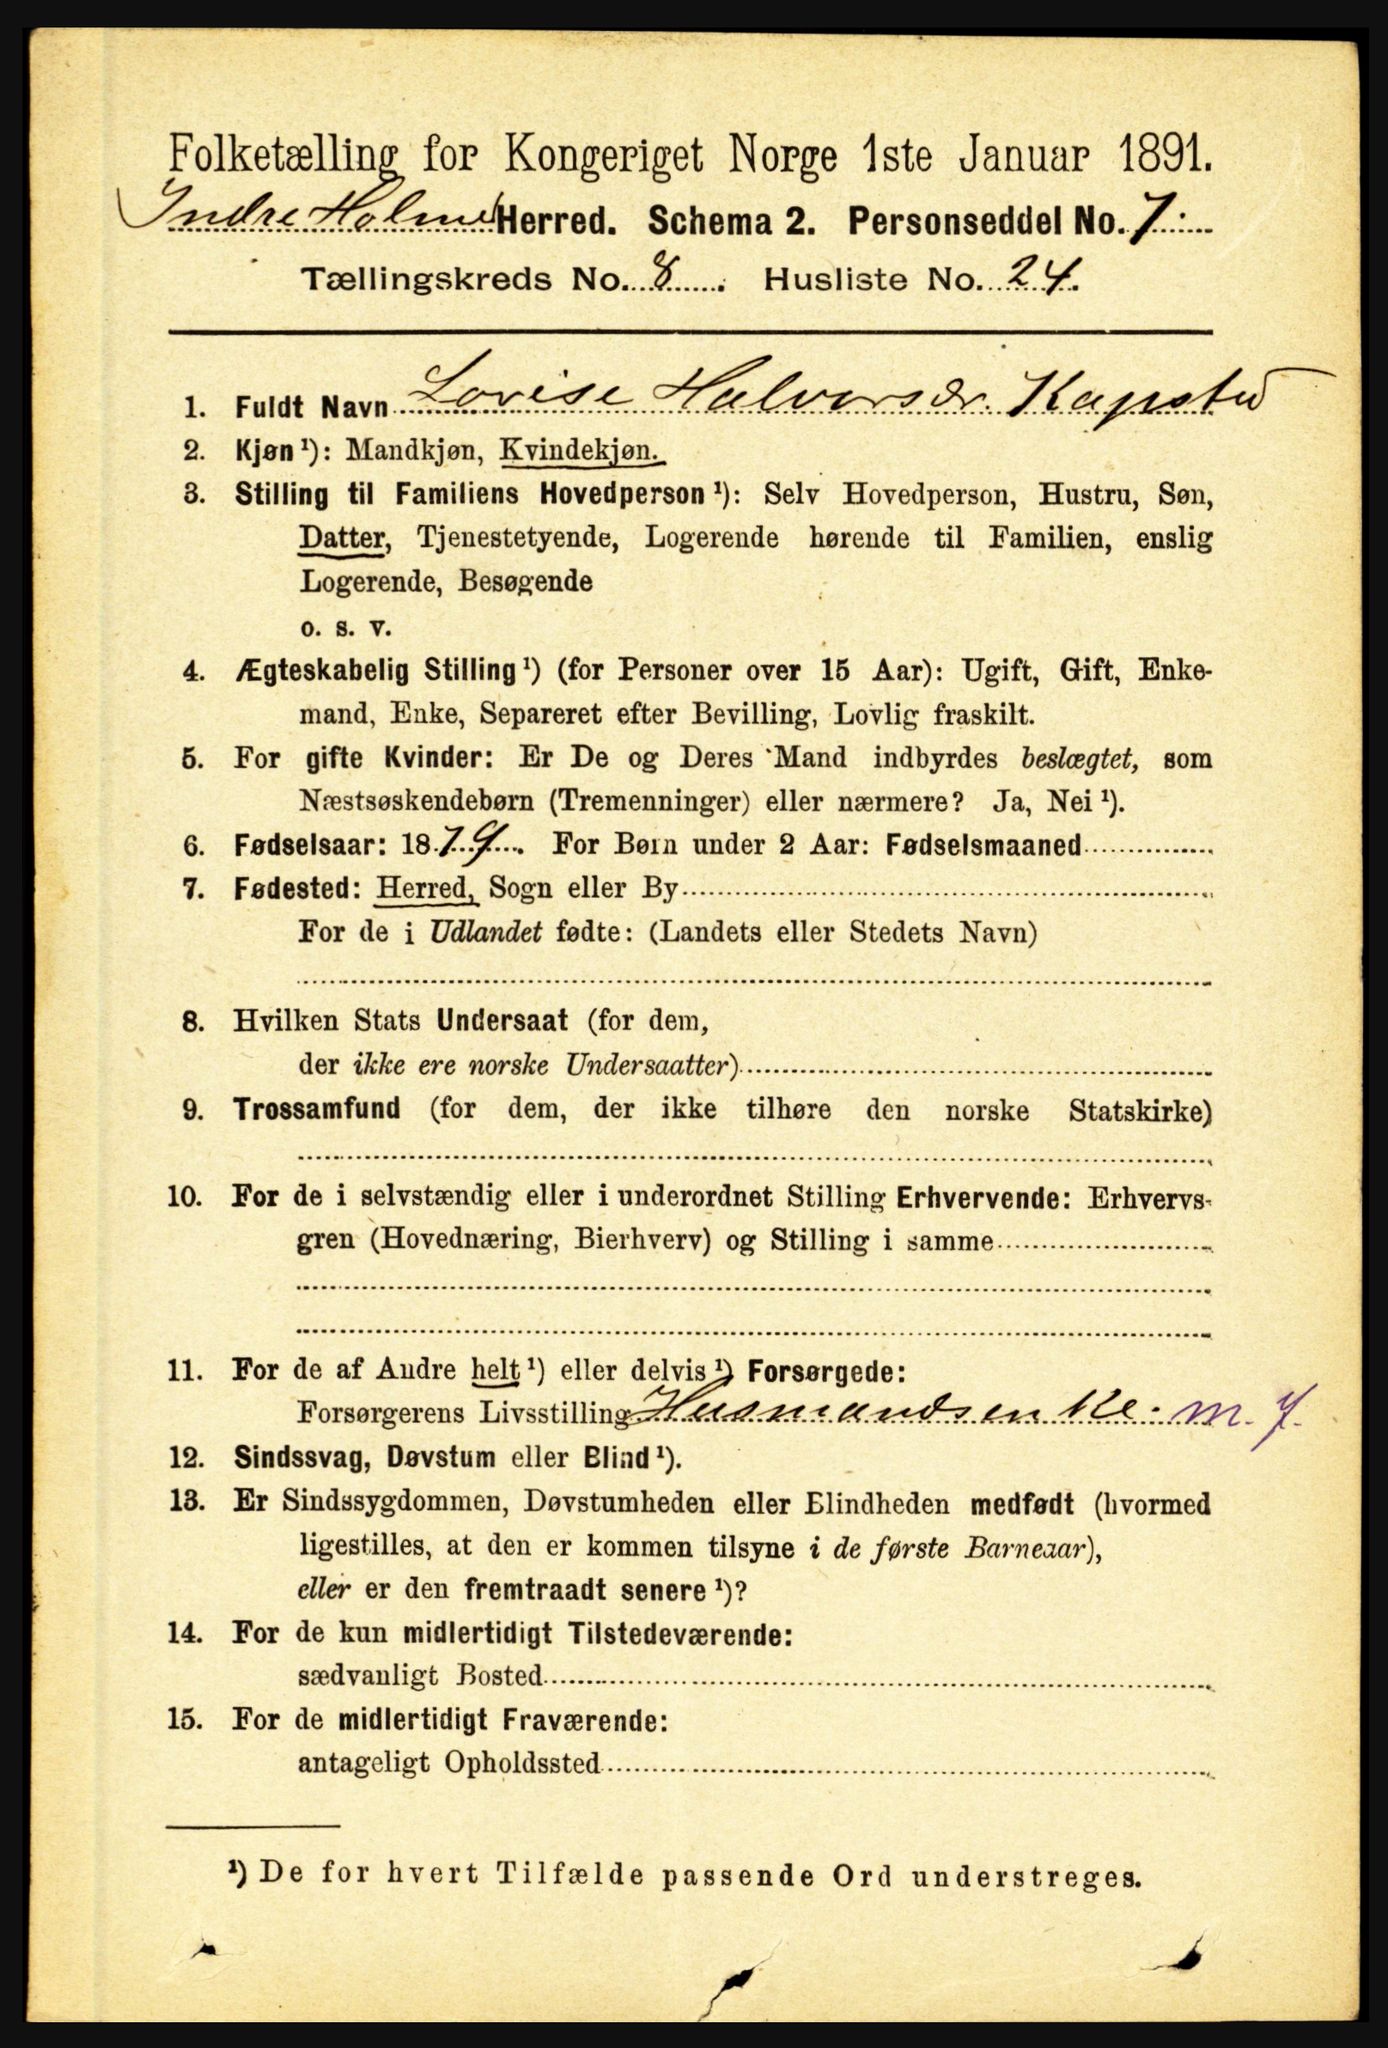 Folketælling for Kongeriget Norge 1ste Januar 1891.
Indre Holme Herred. Schema 2. Personseddel No. 7.
Tællingskreds No. 8. Husliste No. 24.
1. Fuldt Navn Lovise Halvorsdr. Kapstø
2. Kjøn¹): Mandkjøn, Kvindekjøn.
3. Stilling til Familiens Hovedperson¹): Selv Hovedperson, Hustru, Søn,
Datter, Tjenestetyende, Logerende hørende til Familien, enslig
Logerende, Besøgende
o. s. v.
4. Ægteskabelig Stilling¹) (for Personer over 15 Aar): Ugift, Gift, Enke-
mand, Enke, Separeret efter Bevilling, Lovlig fraskilt.
5. For gifte Kvinder: Er De og Deres Mand indbyrdes beslægtet, som
Næstsøskendebørn (Tremenninger) eller nærmere? Ja, Nei¹).
6. Fødselsaar: 1879. For Børn under 2 Aar: Fødselsmaaned
7. Fødested: Herred, Sogn eller By
For de i Udlandet fødte: (Landets eller Stedets Navn)
8. Hvilken Stats Undersaat (for dem,
der ikke ere norske Undersaatter)
9. Trossamfund (for dem, der ikke tilhøre den norske Statskirke)
10. For de i selvstændig eller i underordnet Stilling Erhvervende: Erhvervs-
gren (Hovednæring, Bierhverv) og Stilling i samme
11. For de af Andre helt¹) eller delvis¹) Forsørgede:
Forsørgerens Livsstilling Husmandsenke. m. J.
12. Sindssvag, Døvstum eller Blind¹).
13. Er Sindssygdommen, Døvstumheden eller Blindheden medfødt (hvormed
ligestilles, at den er kommen tilsyne i de første Barneaar),
eller er den fremtraadt senere¹)?
14. For de kun midlertidigt Tilstedeværende:
sædvanligt Bosted
15. For de midlertidigt Fraværende:
antageligt Opholdssted
¹) De for hvert Tilfælde passende Ord understreges.